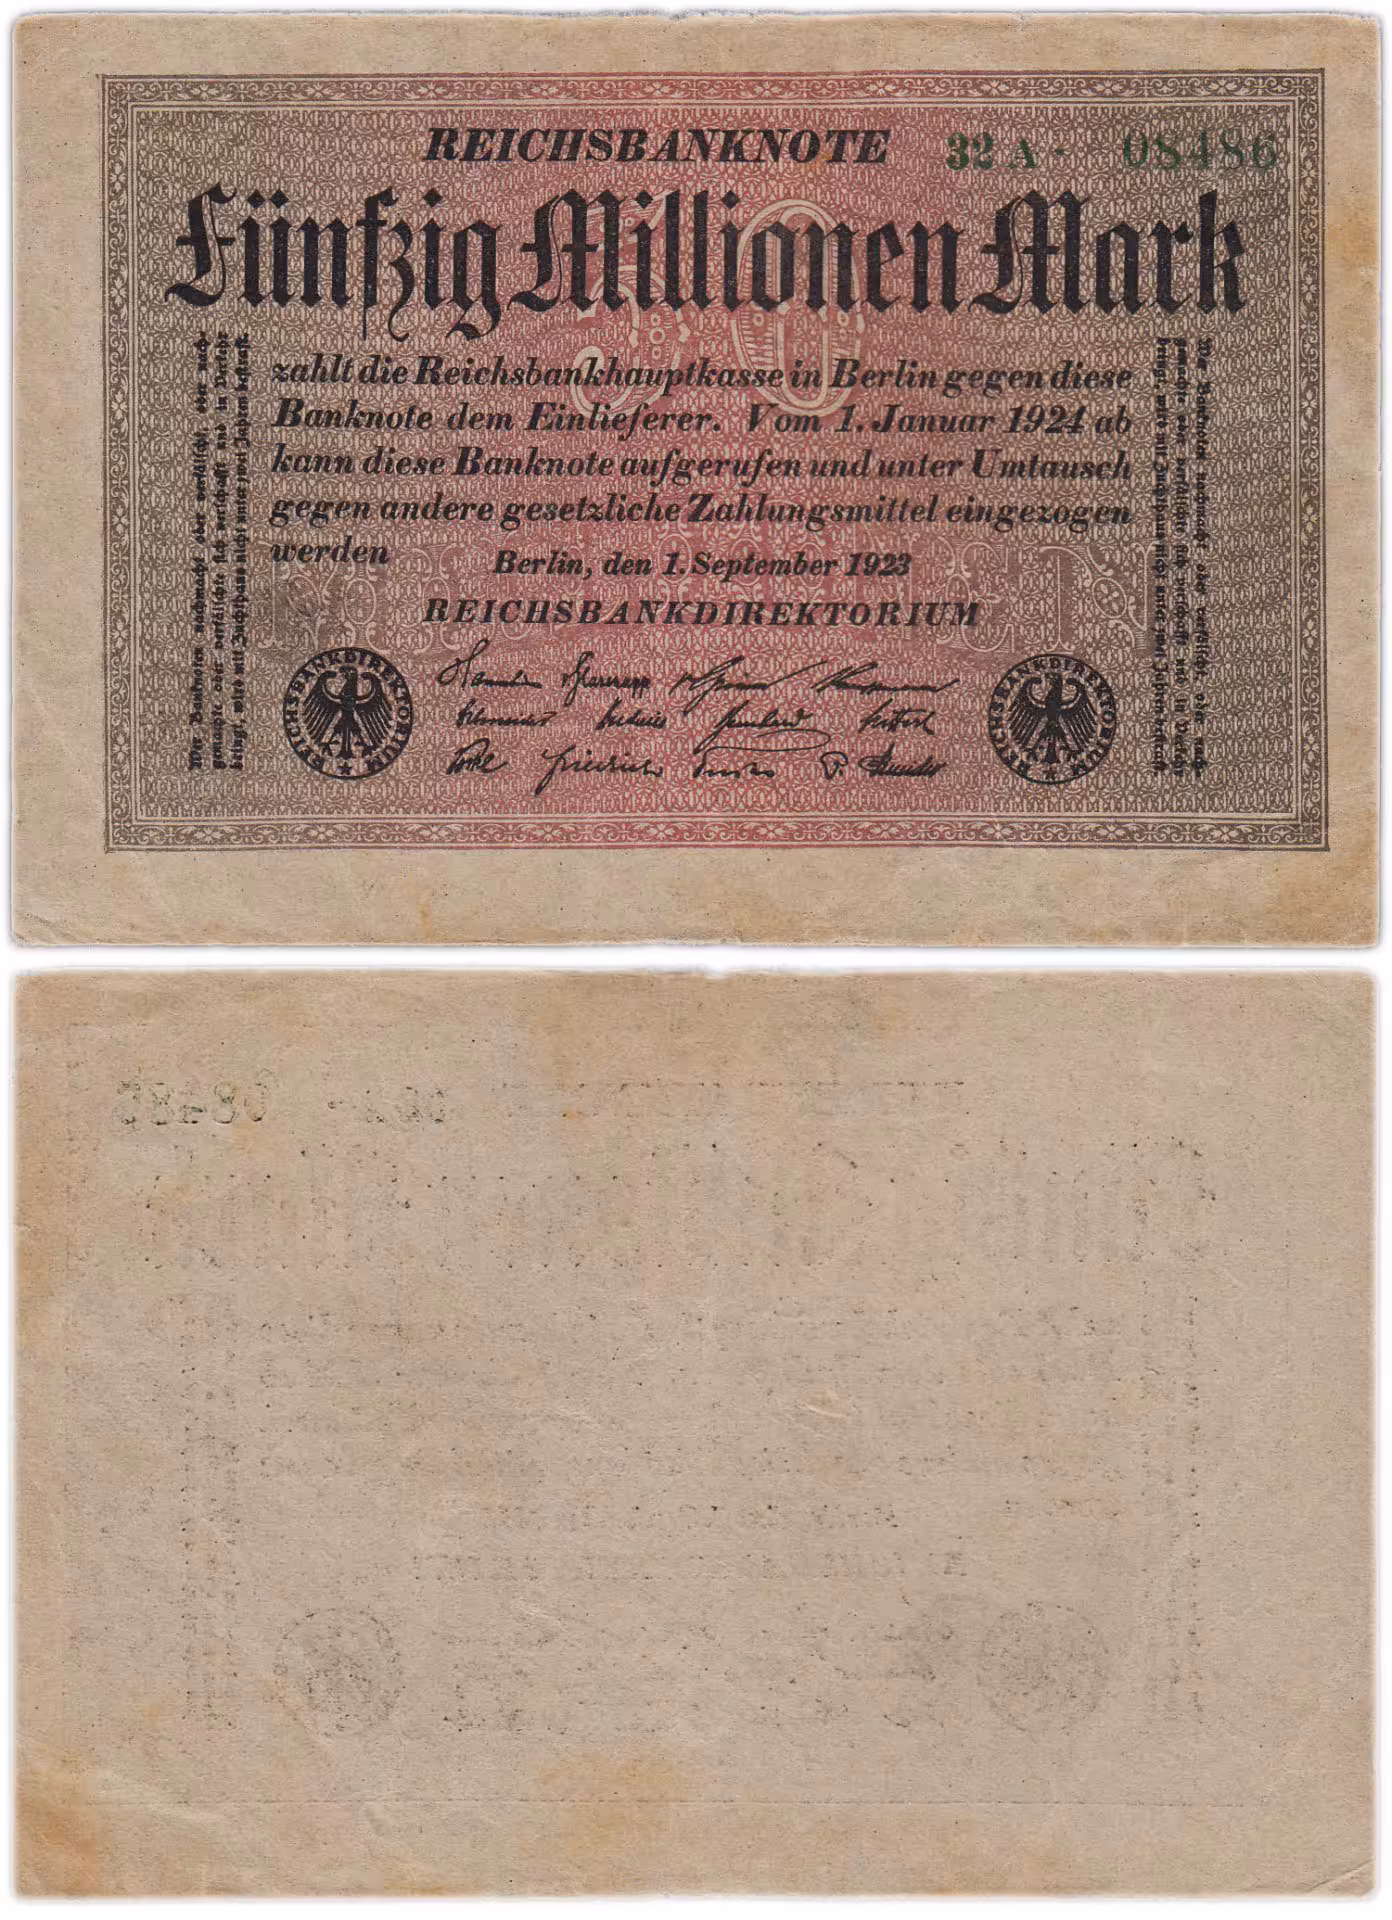 REICHSBANKNOTE 32 A · 08486
50
Fünfzig Millionen Mark
zahlt die Reichsbankhauptkasse in Berlin gegen diese
Banknote dem Einlieferer. Vom 1. Januar 1924 ab
kann diese Banknote aufgerufen und unter Umtausch
gegen andere gesetzliche Zahlungsmittel eingezogen
werden
Berlin, den 1. September 1923
REICHSBANKDIREKTORIUM
Wer Banknoten nachmacht oder verfälscht, oder nach-
gemachte oder verfälschte sich verschafft und in Verkehr
bringt, wird mit Zuchthaus nicht unter zwei Jahren bestraft.
Wer Banknoten nachmacht oder verfälscht, oder nach-
gemachte oder verfälschte sich verschafft und in Verkehr
bringt, wird mit Zuchthaus nicht unter zwei Jahren bestraft.
REICHSBANKDIREKTORIUM
REICHSBANKDIREKTORIUM